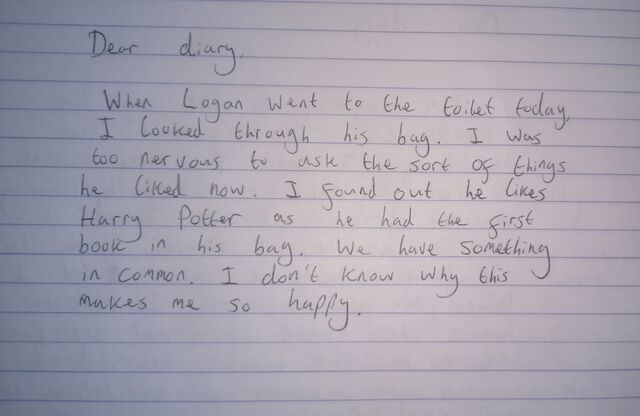 Dear diary,
When Logan went to the toilet today,
I looked through his bag. I was
too nervous to ask the sort of things
he liked now. I found out he likes
Harry Potter as he had the first
book in his bag. We have something
in common. I don't know why this
makes me so happy.